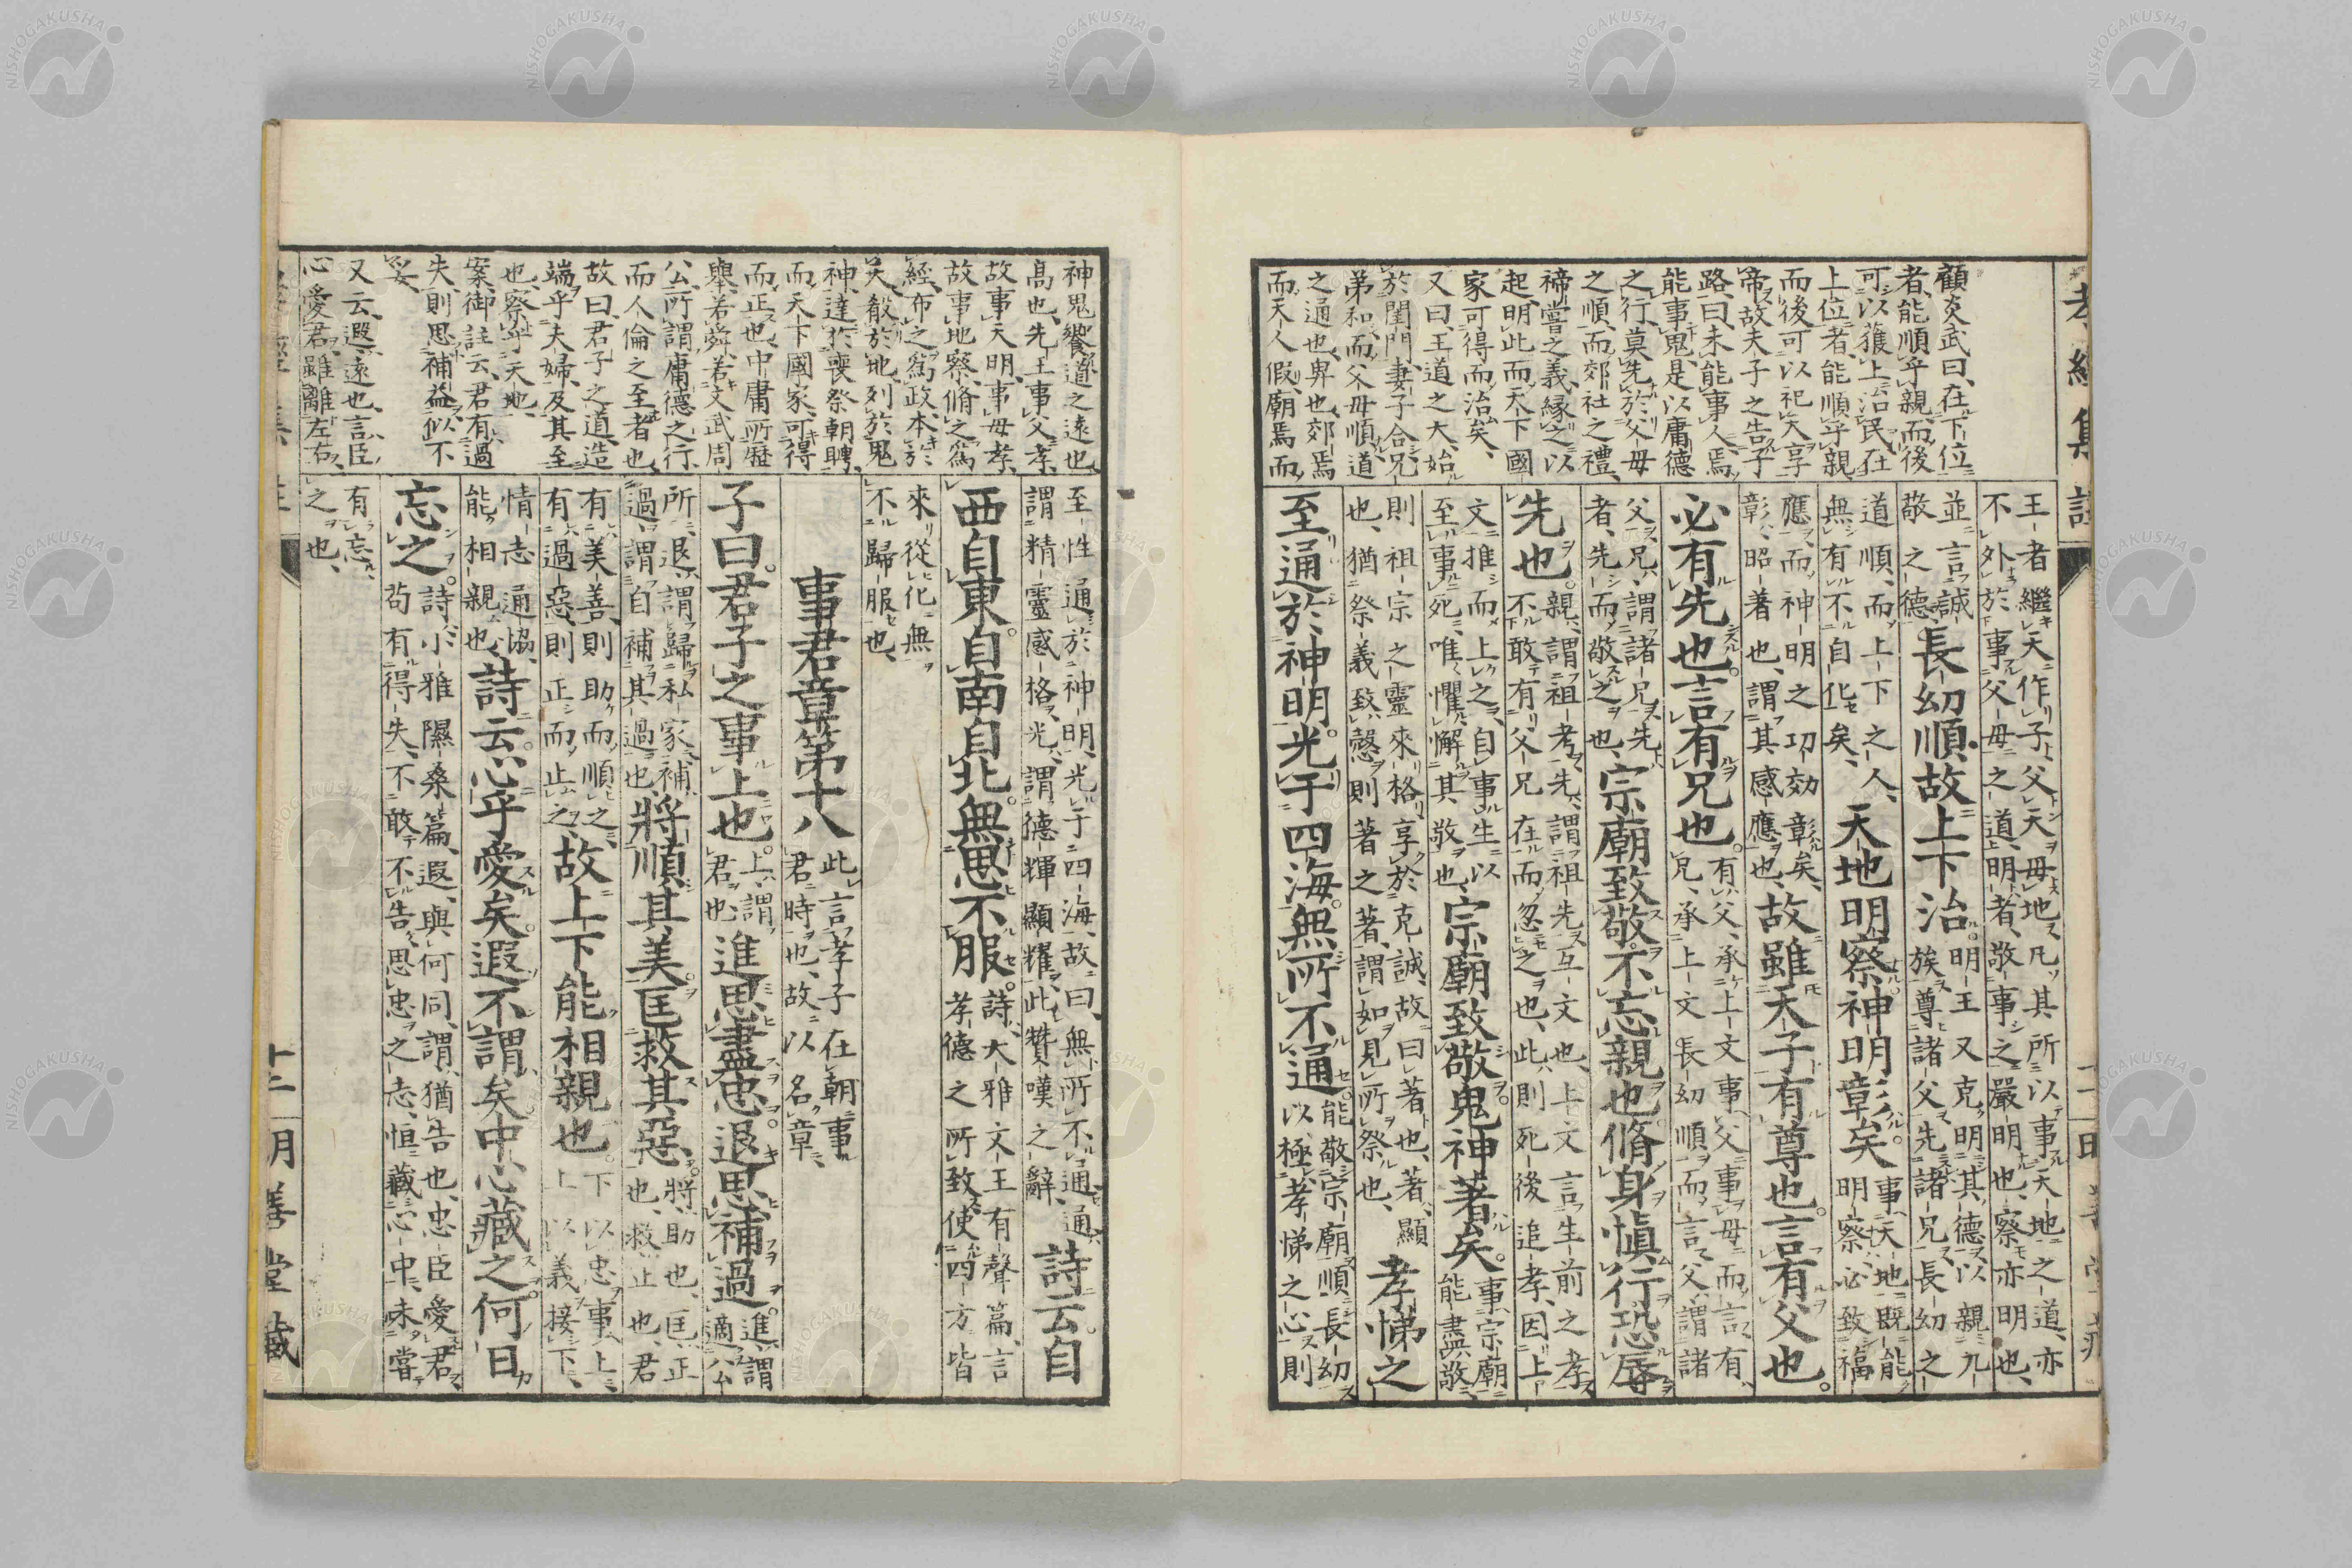 孝經集註
顧炎武曰、在下位
者、能順乎親、而後
可以獲上治民、在
上位者、能順乎親
而後可以祀天享
帝、故夫子之告子
路、曰、未能事人、焉
能事鬼、是以庸德
之行、莫先於父母
之順、而郊社之禮、
禘嘗之義、緣之以
起、明此而天下國
家可得而治矣、
又曰、王道之大、始
於閨門、妻子合、兄
弟和、而父母順、道
之通也、卑也、郊焉
而天人假、廟焉而
王者繼天作子、父天母地、凡其所以事天地之道、亦
不外於事父母之道、明者、敬事之嚴明也、察亦明也、
並言誠
敬之德、
長幼順。故上下治。
明王又克明其德、以親九
族、尊諸父、先諸兄、長幼之
道順、而上下之人、
無有不自化矣、
天地明察。神明彰矣。
事天地既能
明察、必致福
應、而神明之功効彰矣、
彰、昭著也、謂其感應也、
故雖天子有尊也。言有父也。
必有先也。言有兄也。
有父、承上文事父事母而言、有
兄、承上文長幼順而言、父、謂諸
父、兄、謂諸兄、先
者、先而敬之也、
宗廟致敬。不忘親也。脩身愼行。恐辱
先也。
親、謂祖考、先、謂祖先、互文也、上文言生前之孝、
不敢有父兄在而忽之也、此則死後追孝、因上
文推而上之、自事生以
至事死、唯懼懈其敬也、
宗廟致敬。鬼神著矣。
事宗廟
能盡敬、
則祖宗之靈來格、享於克誠、故曰著也、著、顯
也、猶祭義致慤則著之著、謂如見所祭也、
孝悌之
至。通於神明。光于四海。無所不通。
能敬宗廟、順長幼、
以極孝悌之心、則
神鬼饗、道之遠也、
高也、先王事父孝、
故事天明、事母孝、
故事地察、脩之爲
經、布之爲政、本於
天、殽於地、列於鬼
神、達於喪祭朝聘、
而天下國家、可得
而正也、中庸所歷
舉、若舜、若文武周
公、所謂庸德之行、
而人倫之至者也、
故曰、君子之道、造
端乎夫婦、及其至
也、察乎天地、
案、御註云、君有過
失、則思補益、似不
妥、
又云、遐、遠也、言臣
心愛君、雖離左右、
至性通於神明、光于四海、故曰、無所不通、通、
謂精靈感格、光、謂德輝顯耀、此贊嘆之辭、
詩云。自
西自東。自南自北。無思不服。
詩、大雅文王有聲篇、言
孝德之所致、使四方皆
來從化、無
不歸服也、
事君章第十八
此言孝子在朝事
君時也、故以名章、
子曰。君子之事上也。
上、謂
君也、
進思盡忠。退思補過。
進、謂
適公
所、退、謂歸私家、補
過、謂自補其過也、
將順其美。匡救其惡。
將、助也、匡、正
也、救、止也、君
有美善則助而順之、
有過惡則正而止之、
故上下能相親也。
下以忠事上、
上以義接下、
情志通協、
能相親也、
詩云。心乎愛矣。遐不謂矣。中心藏之。何日
忘之。
詩、小雅隰桑篇、遐、與何同、謂、猶告也、忠臣愛君、
苟有得失、不敢不告、思忠之志、恒藏心中、未嘗
有忘
之也、
十二 明善堂藏